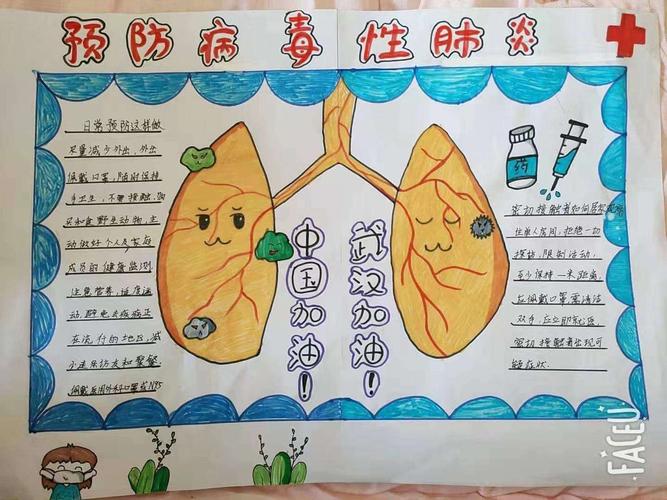 预防病毒性肺炎
日常预防这样做
尽量减少外出，外出
佩戴口罩，随时保持
手卫生，不要接触、购
买和食野生动物，主
动做好个人及家庭
成员的健康监测
注意营养，适度运
动，避免去疫病正
在流行的地区，减
少走亲访友和聚餐
佩戴医用外科口罩或N95
中国加油！
武汉加油！
药
密切接触者如何居家
住单人房间，拒绝一切
探访，限制活动，
至少保持一米距离，
应佩戴口罩
双手，应立即就医，
密切接触者出现可
疑症状．
FACEU